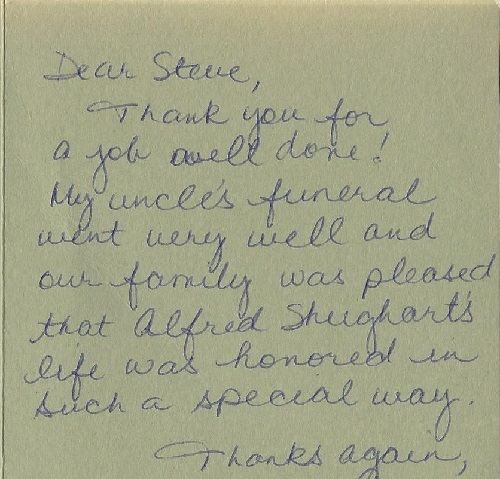 Dear Steve,
Thank you for
a job well done!
My uncle's funeral
went very well and
our family was pleased
that Alfred Shughart's
life was honored in
such a special way.
Thanks again,